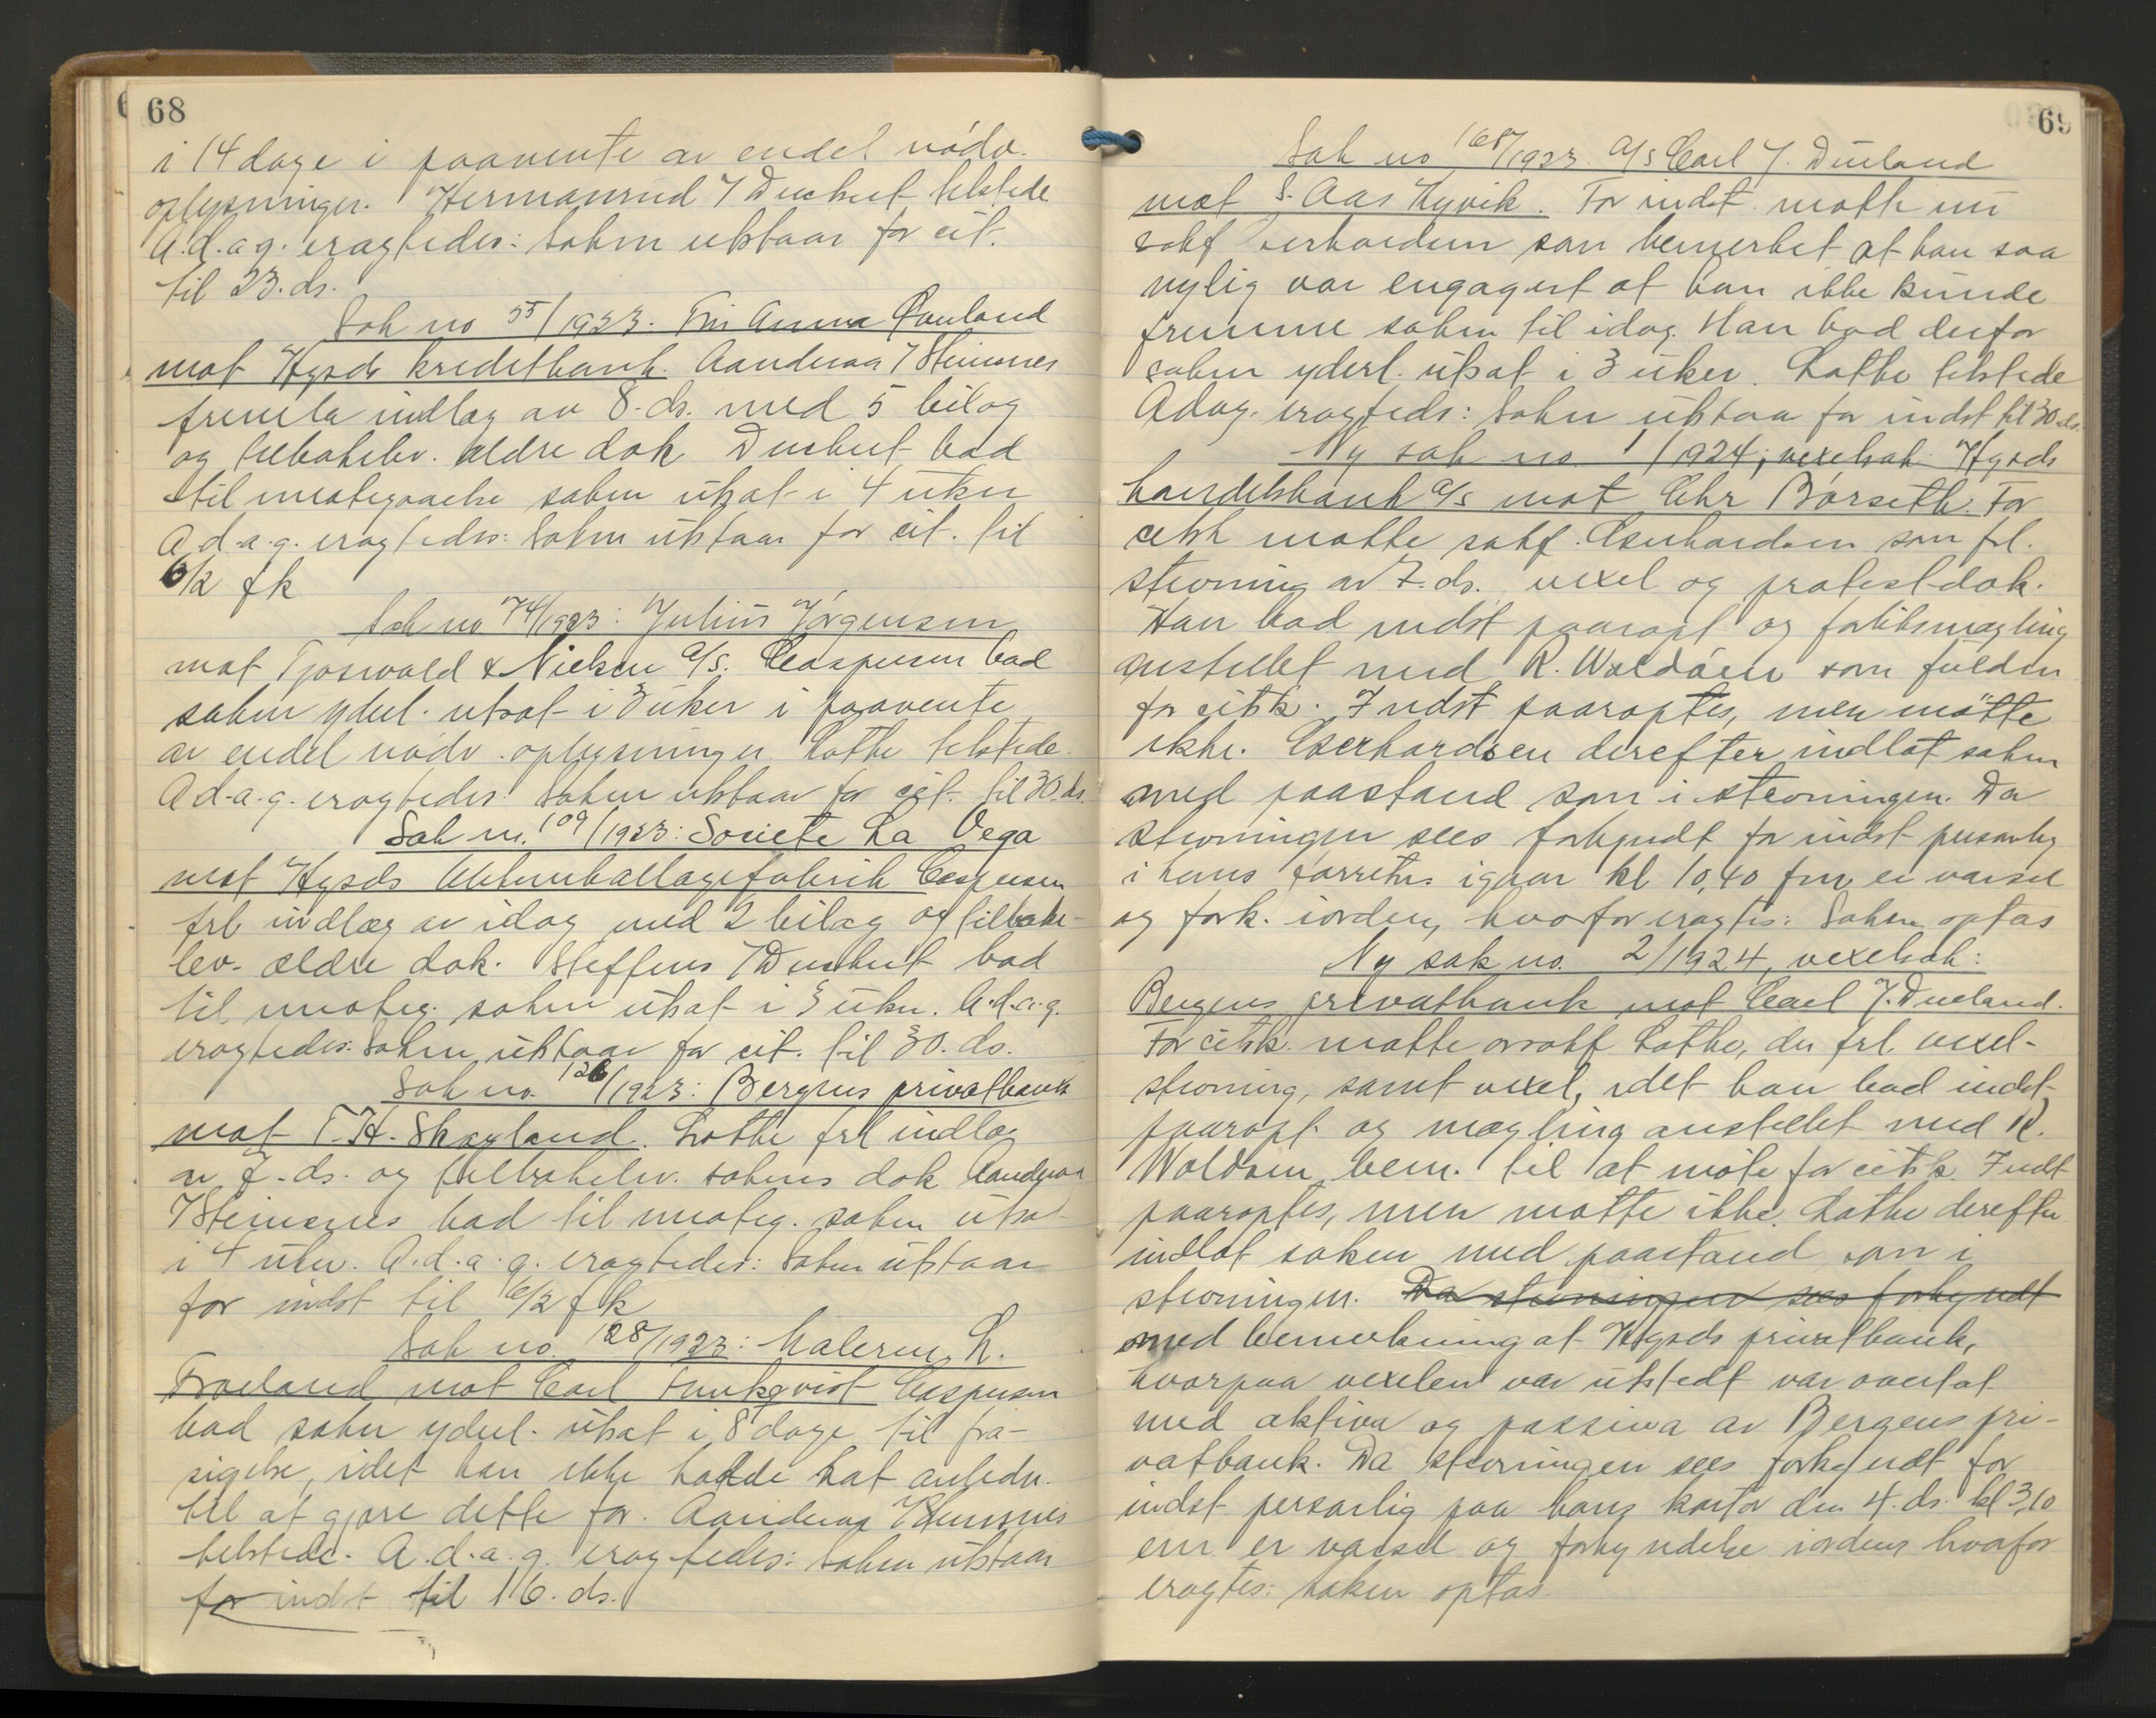 68
i 14 dage i paavente av endel nødv.
oplysninger. Hermansrud / Duckert tilstede
A.d.a.g. eragtedes: Saken utstaar for cit.
til 23. ds.
Sak no 55/1923. Frk Anna
mot Hgsds kreditbank. Aanderaa / Steinsnes
fremla indlæg av 8. ds. med 5 bilag
og tilbakelev. ældre dok. Duckert bad
til imøtegaaelse saken utsat i 4 uker
A.d.a.g. eragtedes: Saken utstaar for cit. til
6/2 fk
Sak no 74/1923: Julius Jørgensen
mot Tjoswold & Nielsen A/S. Caspersen bad
saken yderl. utsat i 3 uker i paavente
av endel nødv. oplysninger. Lothe tilstede.
A.d.a.g. eragtedes: Saken utstaar for cit. til 30. ds.
Sak no. 109/1923: Societe La Vega
mot Hgsds Blikemballagefabrik Caspersen
frl. indlæg av idag med 2 bilag og tilbake-
lev. ældre dok. Steffens / Duckert bad
til imøteg. saken utsat i 3 uker. A.d.a.g.
eragtedes: Saken utstaar for cit. til 30. ds.
Sak no. 126/1923: Bergens privatbank
mot T. H. Skogland. Lothe frl. indlæg
av 7. ds. og tilbakelev. sakens dok. Aanderaa
/ Steinsnes bad til imøteg. saken utsat
i 4 uker. A.d.a.g. eragtedes: Saken utstaar
for indst til 6/2 fk
Sak no. 128/1923: Maleren L.
Froeland mot Carl Funkqvist Caspersen
bad saken yderl. utsat i 8 dage til fra-
sigelse, idet han ikke hadde hat anledn.
til at gjøre dette før. Aanderaa / Steinsnes
tilstede. A.d.a.g. eragtedes: Saken utstaar
for indst til 16. ds.
69
Sak no 168/1923. A/S Carl J. Dueland
mot S. Aas Kyvik. For indst. møtte nu
sakf. Eberhardsen som bemerket at han saa
nylig var engagert at han ikke kunde
fremme saken til idag. Han bad derfor
saken yderl. utsat i 3 uker. Lothe tilstede
Adag. eragtedes: Saken utstaa for indst til 30. ds.
Ny sak no. 1/1924, vexelsak: Hgsds
handelsbank A/S mot Chr Børseth. For
citsk møtte sakf. Eberhardsen som frl.
stevning av 7. ds. vexel og protestdok.
Han bad indst paaropt og forliksmægling
anstillet med R. Waldøen som fuldm
for citsk. Indst paaroptes, men møtte
ikke. Eberhardsen derefter indlot saken
med paastand som i stevningen. Da
stevningen sees forkyndt for indst personlig
i hans forretn. igaar kl 10,40 fm, er varsel
og fork. iorden, hvorfor eragtes: Saken optas
Ny sak no. 2/1924, vexelsak:
Bergens privatbank mot Carl J. Dueland.
For citsk. møtte orsakf Lothe, der frl. vexel-
stevning, samt vexel, idet han bad indst
paaropt og mægling anstillet med R.
Waldøen bem. til at møte for citsk. Indst
paaroptes, men møtte ikke. Lothe derefter
indlot saken med paastand som i
stevningen. Da stevningen sees forkyndt
med bemerkning at Hgsds privatbank,
hvorpaa vexelen var utstedt var overtat
med aktiva og passiva av Bergens pri-
vatbank. Da stevningen sees forkyndt for
indst personlig paa hans kontor den 4. ds. kl 3,10
em er varsel og forkyndelse iorden hvorfor
eragtes: Saken optas